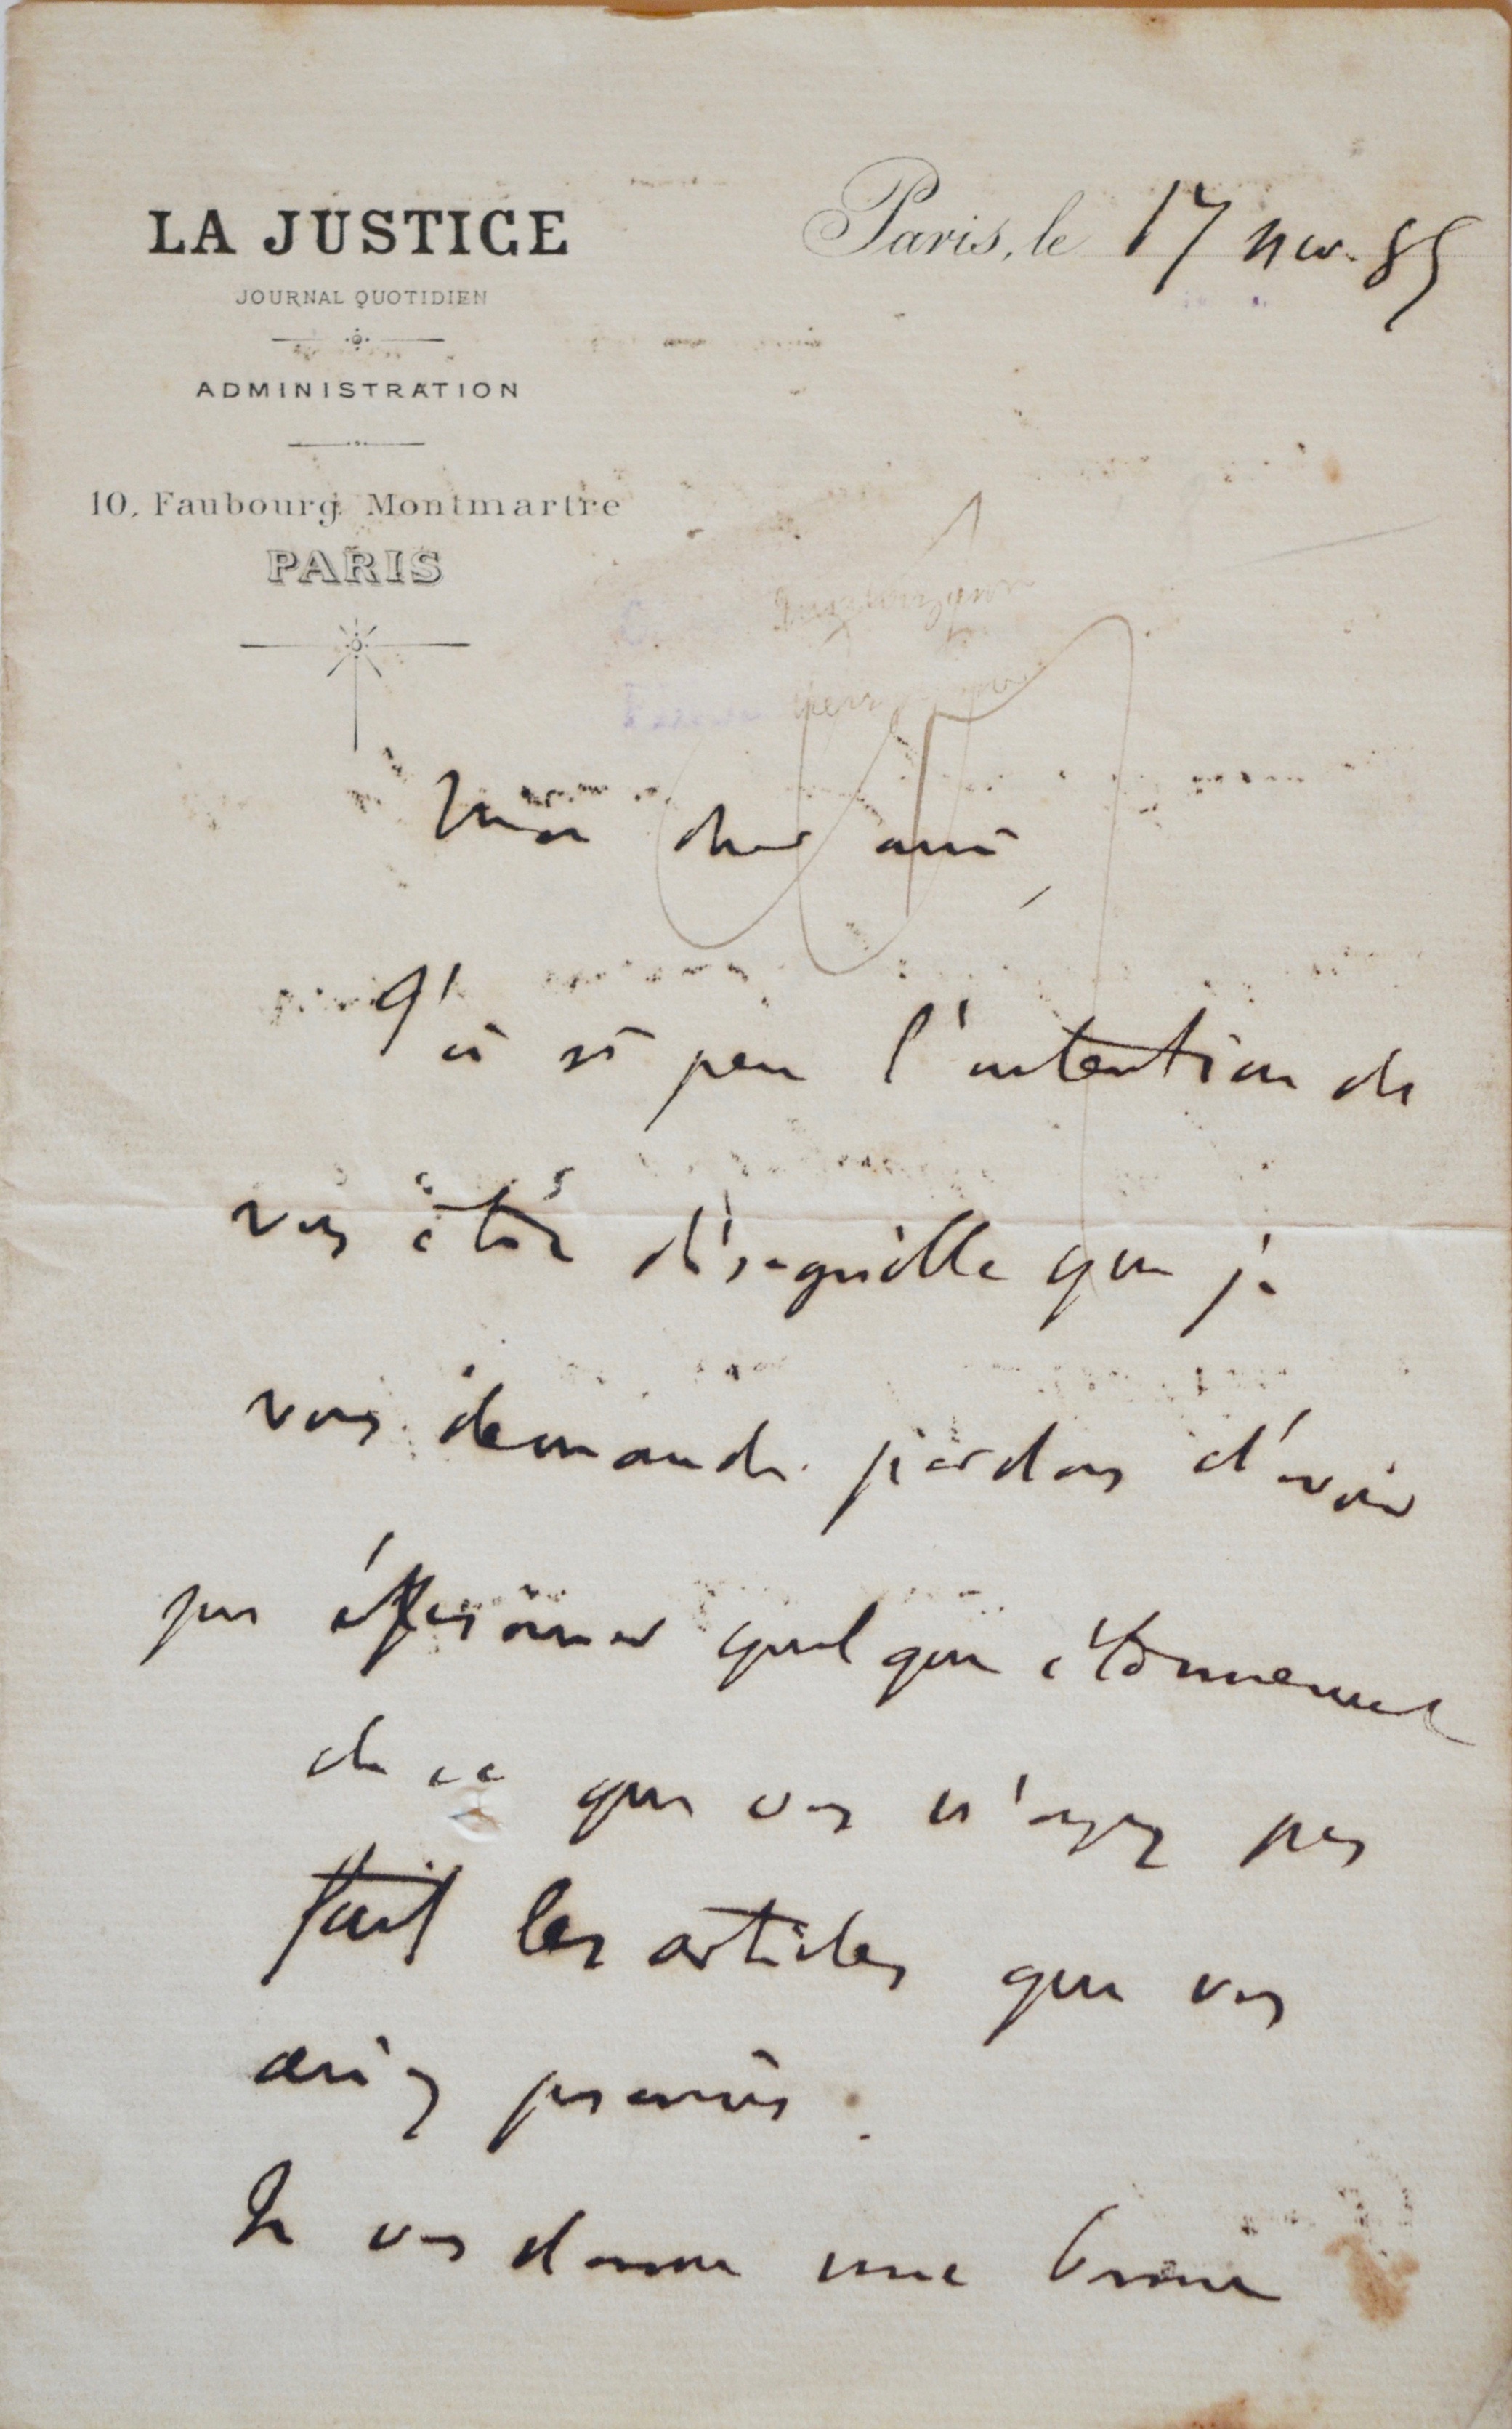 LA JUSTICE
JOURNAL QUOTIDIEN
ADMINISTRATION
10, Faubourg Montmartre
PARIS
Paris, le 17 nov. 85
Mon cher ami,
J'ai si peu l'intention de
vous être désagréable que je
vous demande pardon d'avoir
pu exprimer quelque étonnement
de ce que vous n'ayez pas
fait les articles que vous
aviez promis.
Je vous donne une bonne